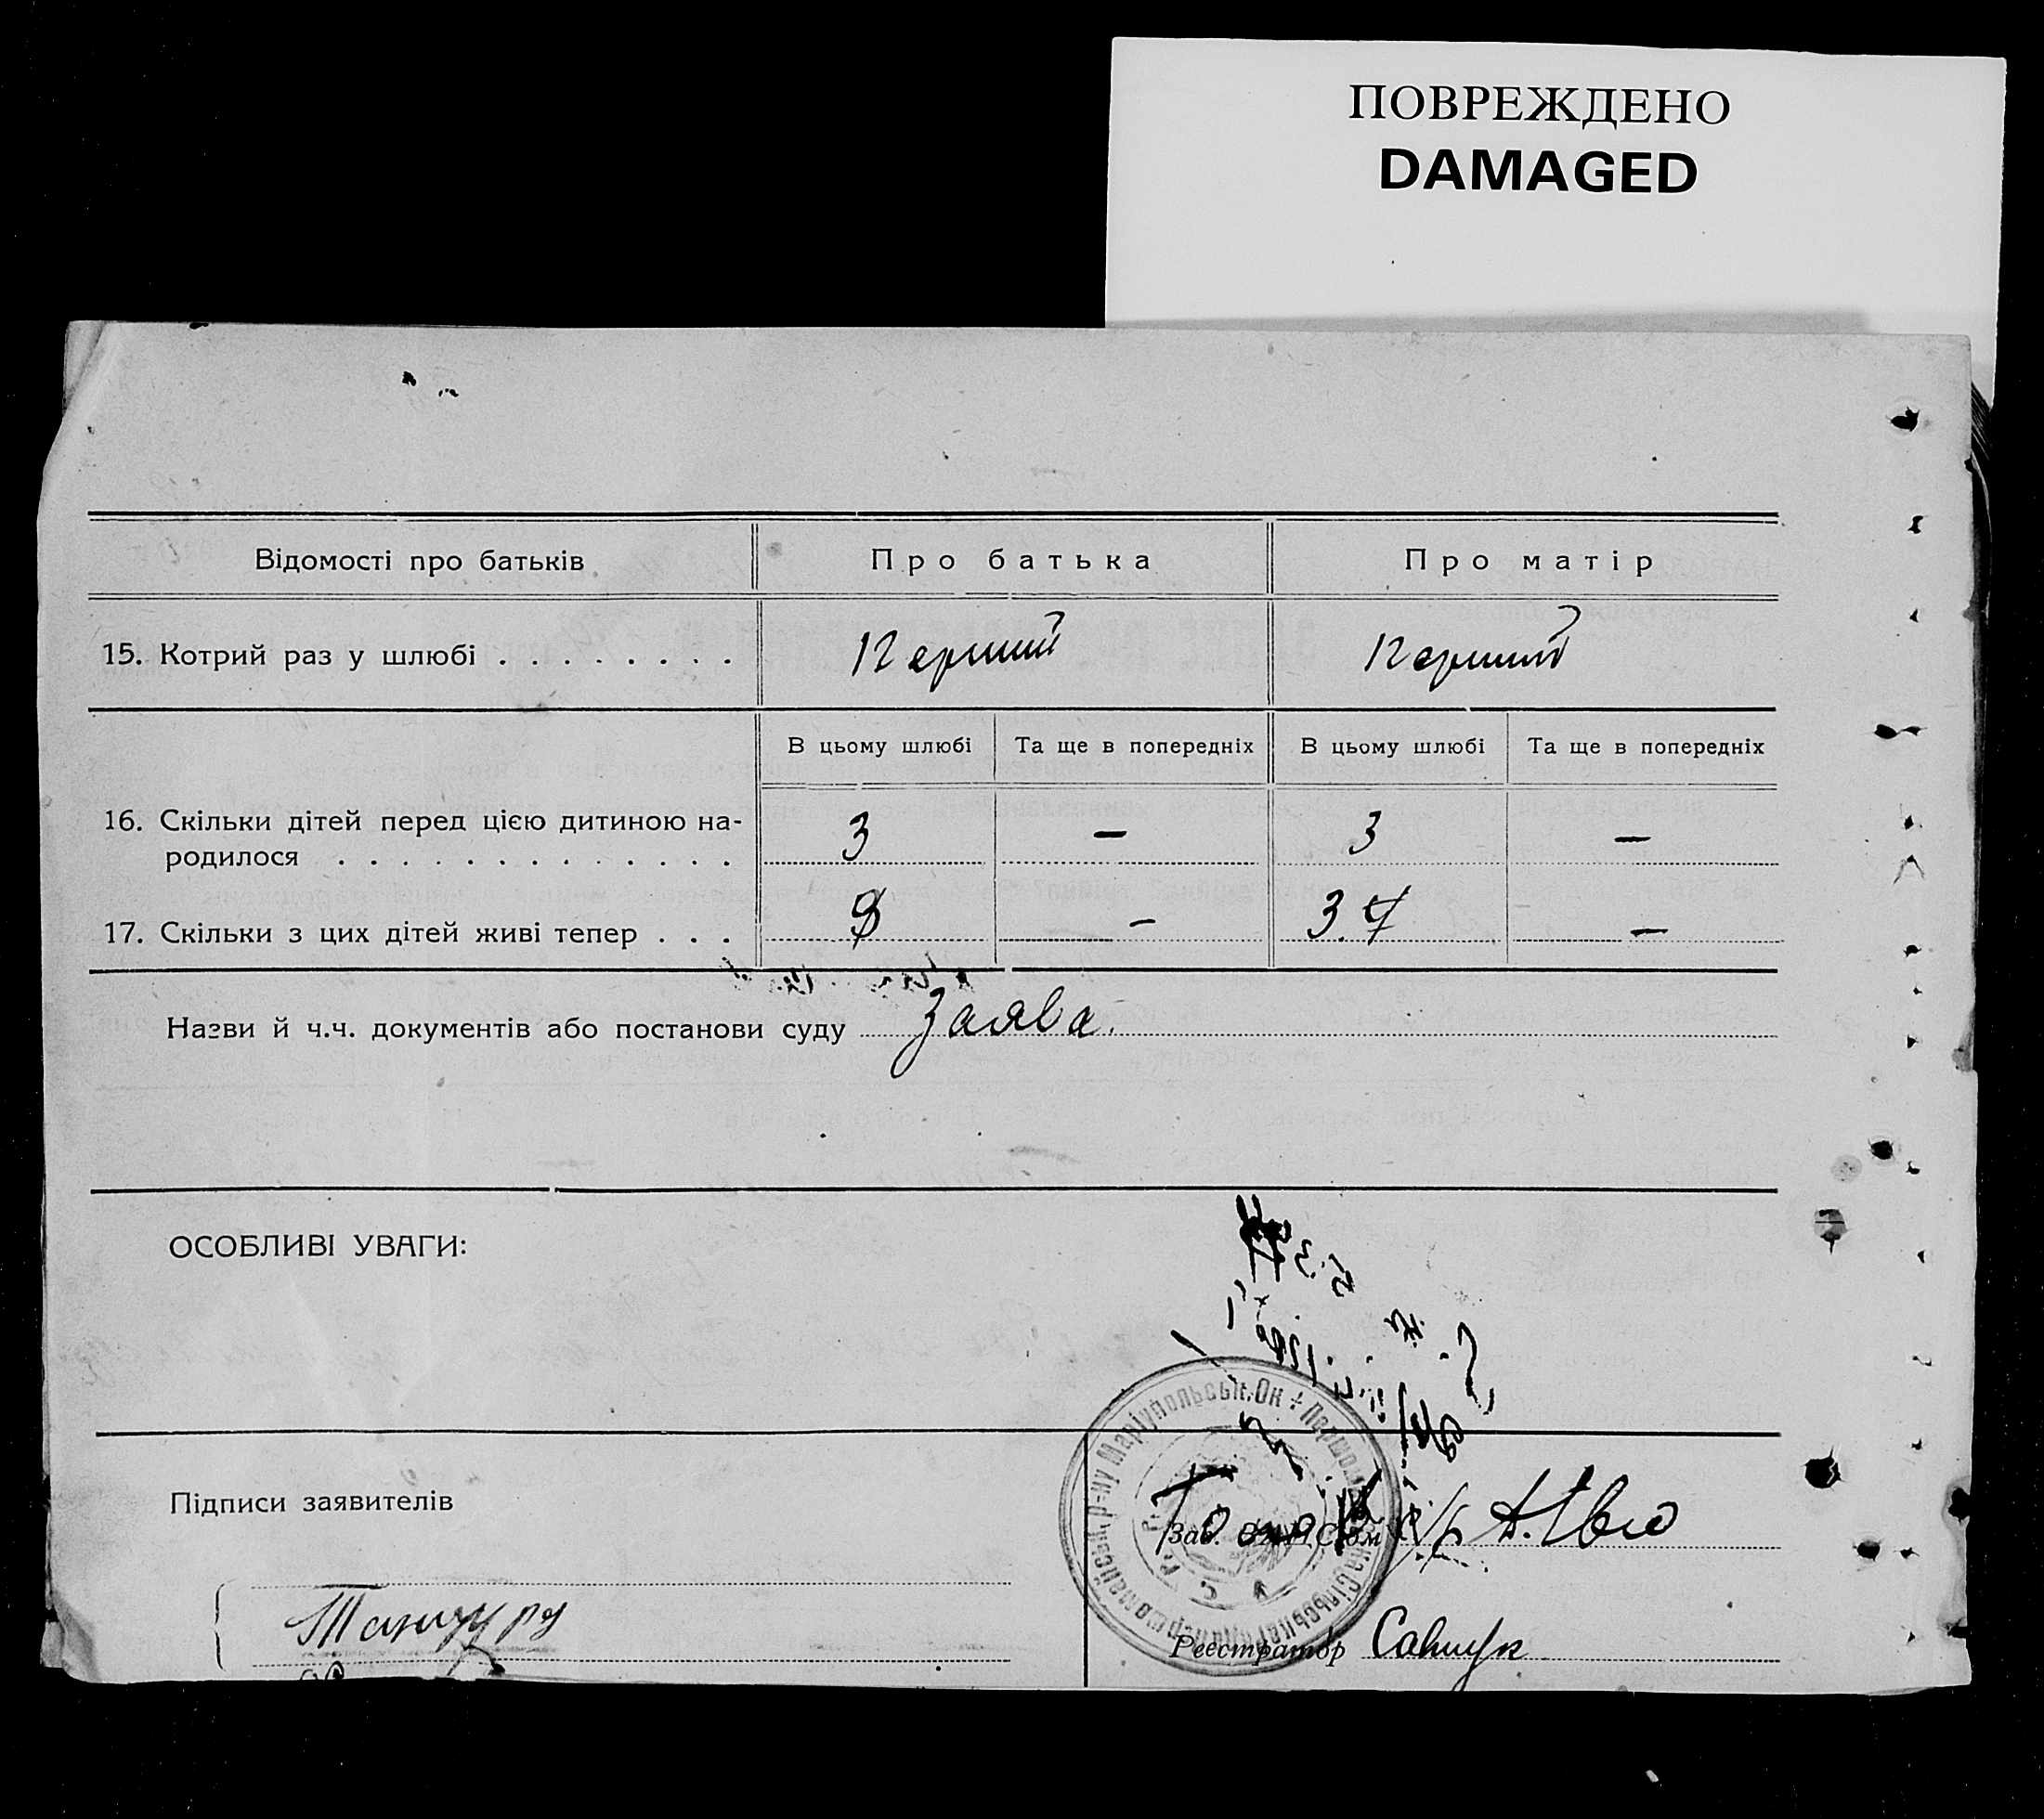 ПОВРЕЖДЕНО
DAMAGED
Відомості про батьків
Про батька
Про матір
15. Котрий раз у шлюбі . . . . . . . .
Перший
Перший
В цьому шлюбі
Та ще в попередніх
В цьому шлюбі
Та ще в попередніх
16. Скільки дітей перед цією дитиною на-
родилося . . . . . . . . . . . . .
3
—
3
—
17. Скільки з цих дітей живі тепер . . .
—
3.
—
Назви й ч.ч. документів або постанови суду Заява.
ОСОБЛИВІ УВАГИ:
Маріупольськ. Ок
Підписи заявителів
Зав.
Реєстратор